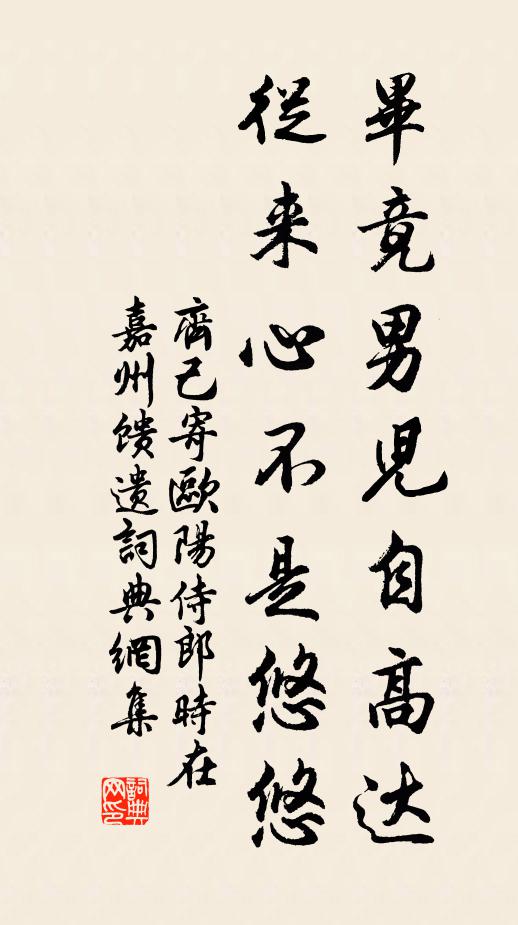 畢竟男児自高达
從来心不是悠悠
齊己寄歐陽侍郎時在
嘉州馈遗詞典網集
詞典网印